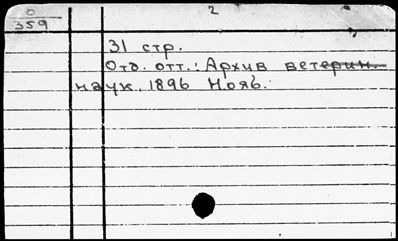 0 2
359
31 стр.
Отд. отт.: Архив ветерин.
наук. 1896 Нояб.